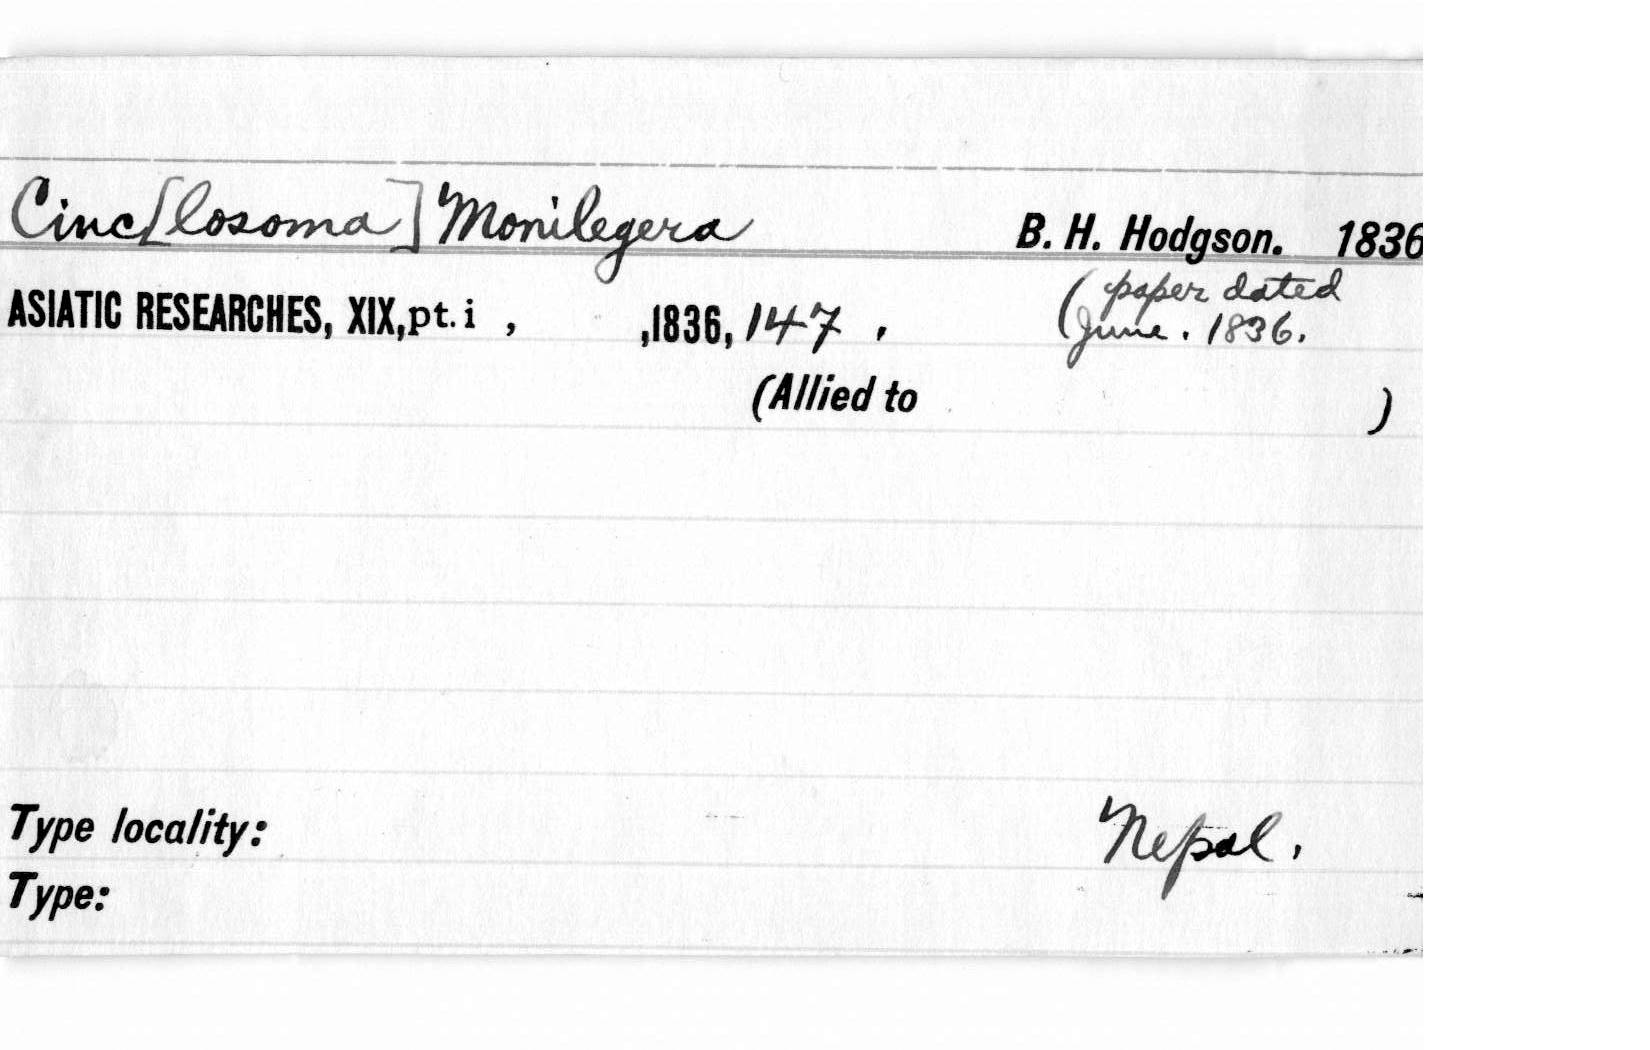 Cinc[losoma] Monilegera B. H. Hodgson. 1836
ASIATIC RESEARCHES, XIX, pt. i , ,1836, 147 , (paper dated
(June. 1836.
(Allied to )
Type locality: Nepal.
Type: